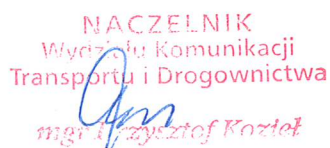 NACZELNIK
Wydziału Komunikacji
Transportu i Drogownictwa
mgr Krzysztof Kozieł